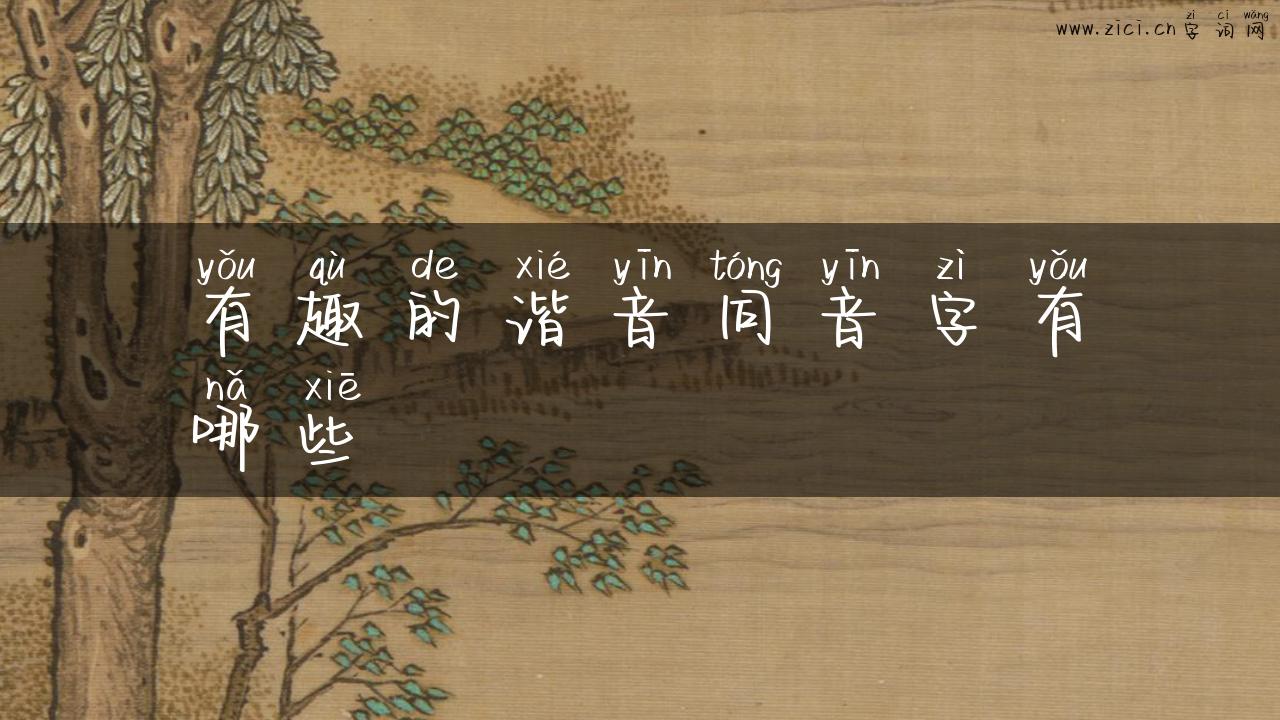 zì cí wǎng
www.zici.cn 字词网
yǒu qù de xié yīn tóng yīn zì yǒu
有趣的谐音同音字有
nǎ xiē
哪些